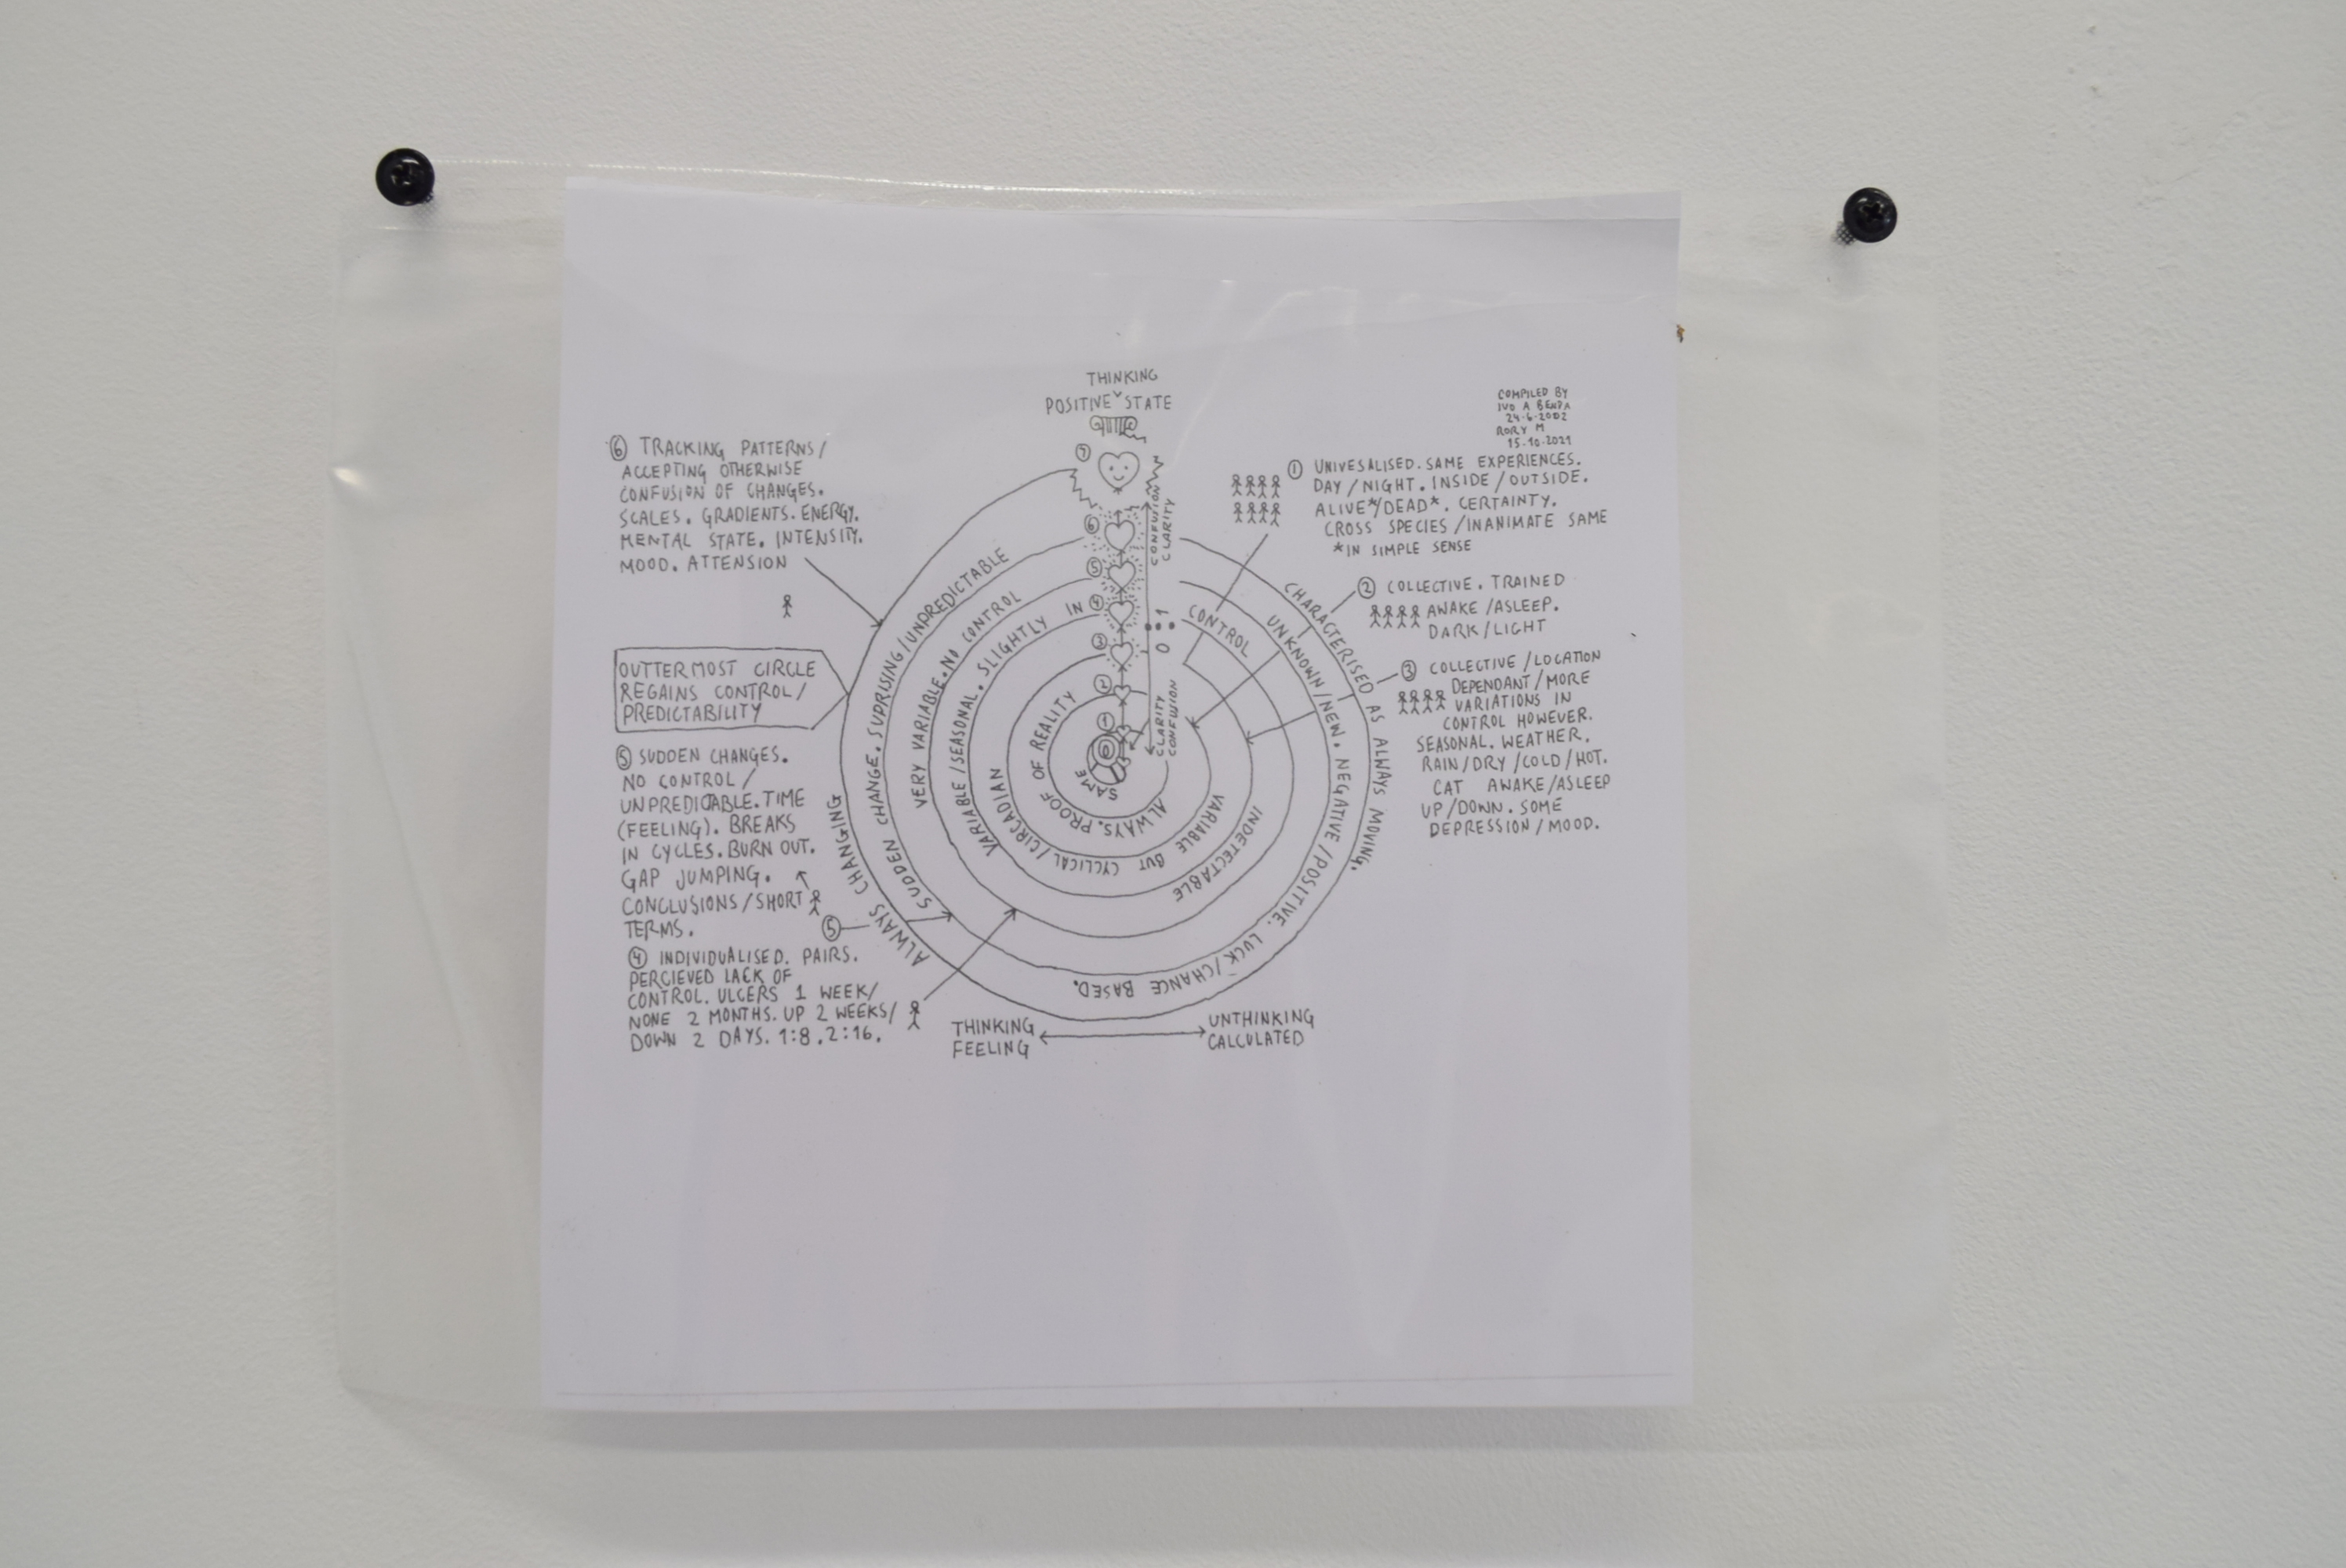 THINKING
POSITIVE ˅ STATE
COMPILED BY
IVO A
24·6·2002
RORY M
15·10·2021
⑥ TRACKING PATTERNS/
ACCEPTING OTHERWISE
CONFUSION OF CHANGES.
SCALES. GRADIENTS. ENERGY.
MENTAL STATE. INTENSITY.
MOOD. ATTENSION
OUTTERMOST CIRCLE
REGAINS CONTROL/
PREDICTABILITY
⑤ SUDDEN CHANGES.
NO CONTROL/
UNPREDICTABLE. TIME
(FEELING). BREAKS
IN CYCLES. BURN OUT.
GAP JUMPING.
CONCLUSIONS/SHORT
TERMS.
⑤
④ INDIVIDUALISED. PAIRS.
PERCIEVED LACK OF
CONTROL. ULCERS 1 WEEK/
NONE 2 MONTHS. UP 2 WEEKS/
DOWN 2 DAYS. 1:8. 2:16.
⑦
⑥
⑤
④
③
②
①
0
CONFUSION
CLARITY
0 : 1
CLARITY
CONFUSION
SAME
ALWAYS. PROOF OF REALITY
VARIABLE BUT CYCLICAL/CIRCADIAN
INDETECTABLE
VARIABLE/SEASONAL. SLIGHTLY IN CONTROL
VERY VARIABLE. NO CONTROL
UNKNOWN/NEW. NEGATIVE/POSITIVE. LUCK/CHANCE BASED.
SUDDEN CHANGE. SUPRISING/UNPREDICTABLE
CHARACTERISED AS ALWAYS MOVING.
ALWAYS CHANGING
① UNIVESALISED. SAME EXPERIENCES.
DAY/NIGHT. INSIDE/OUTSIDE.
ALIVE*/DEAD*. CERTAINTY.
CROSS SPECIES/INANIMATE SAME
*IN SIMPLE SENSE
② COLLECTIVE. TRAINED
AWAKE/ASLEEP.
DARK/LIGHT
③ COLLECTIVE/LOCATION
DEPENDANT/MORE
VARIATIONS IN
CONTROL HOWEVER.
SEASONAL. WEATHER.
RAIN/DRY/COLD/HOT.
CAT AWAKE/ASLEEP
UP/DOWN. SOME
DEPRESSION/MOOD.
THINKING
FEELING
UNTHINKING
CALCULATED